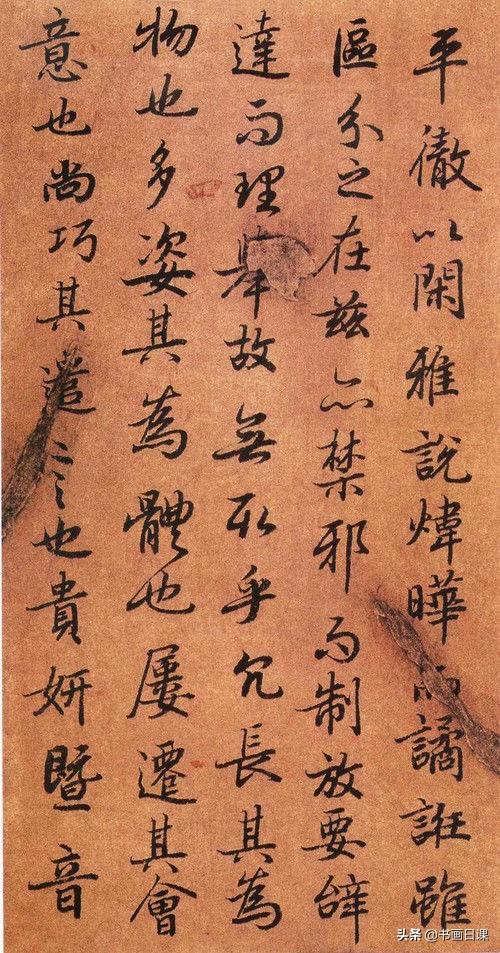 平徹以閑雅説煒曄而譎誑雖
區分之在兹亦禁邪而制放要辞
達而理舉故無取乎冗長其為
物也多姿其為體也屢遷其會
意也尚巧其遣言也貴妍暨音
头条 @书画日课